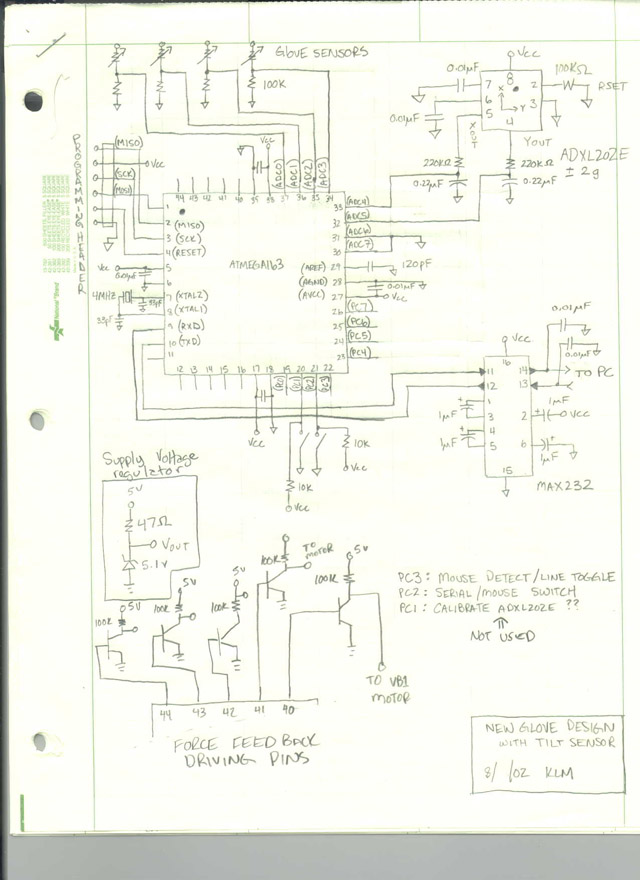 GLOVE SENSORS
100K
VCC
0.01µF
0.01µF
100KΩ
RSET
8
7
6
5
2
3
4
X
Y
XOUT
YOUT
ADXL202E
± 2g
220KΩ
220KΩ
0.22µF
0.22µF
PROGRAMMING HEADER
(MISO)
VCC
(SCK)
(MOSI)
VCC
(ADC0)
(ADC1)
(ADC2)
(ADC3)
44 43 42 41 40 39 38 37 36 35 34
1
2 (MISO)
3 (SCK)
4 (RESET)
5
6
7 (XTAL2)
8 (XTAL1)
9 (RXD)
10 (TXD)
11
ATMEGA163
33 (ADC4)
32 (ADC5)
31 (ADC6)
30 (ADC7)
(AREF) 29
(AGND) 28
(AVCC) 27
26 (PC7)
25 (PC6)
24 (PC5)
23 (PC4)
120pF
0.01µF
VCC
VCC
0.01µF
4MHZ
33pF
33pF
12 13 14 15 16 17 18 19 20 21 22
(PC0)
(PC1)
(PC2)
(PC3)
VCC
10K
VCC
10K
VCC
VCC
16
11
12
1
3
4
5
14
13
2
6
15
0.01µF
0.01µF
TO PC
1µF
1µF
1µF
VCC
1µF
MAX232
Supply Voltage
regulator
5V
47Ω
VOUT
5.1V
5V
100K
5V
100K
5V
100K
100K
TO
MOTOR
5V
100K
TO VB1
MOTOR
44 43 42 41 40
FORCE FEEDBACK
DRIVING PINS
PC3: MOUSE DETECT/LINE TOGGLE
PC2: SERIAL/MOUSE SWITCH
PC1: CALIBRATE ADXL202E ??
NOT USED
NEW GLOVE DESIGN
WITH TILT SENSOR
8/ /02 KLM
National Brand